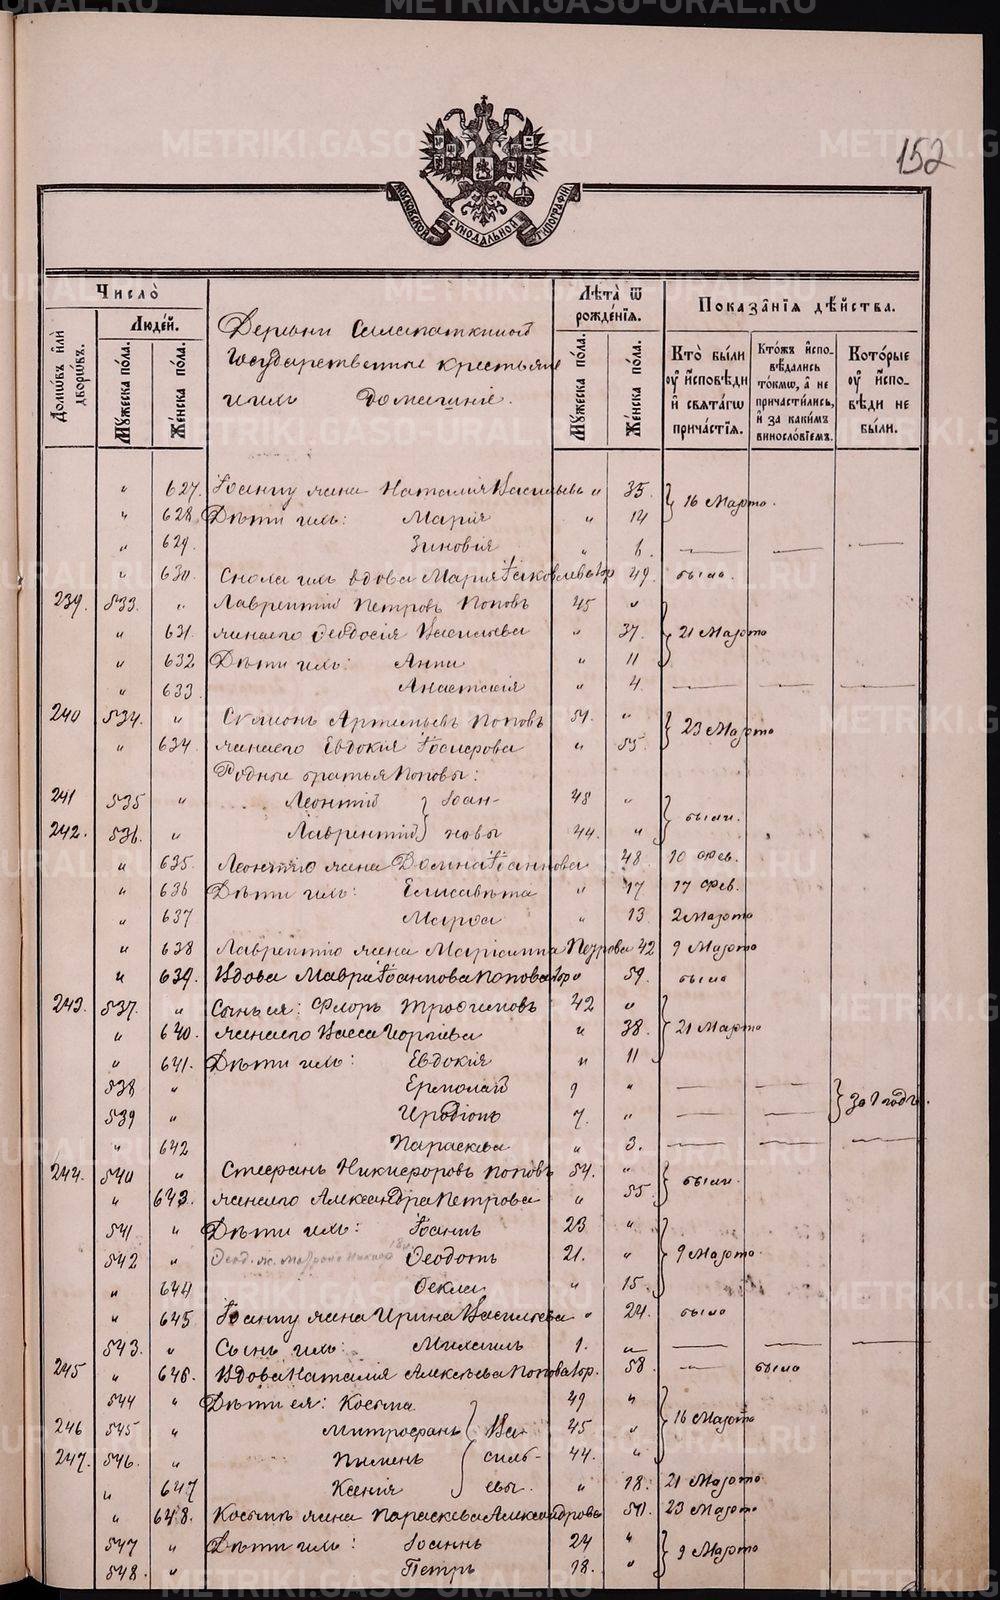 METRIKI.GASO-URAL.RU
152
МОСКОВСКОЙ СУНОДАЛЬНОЙ ТИПОГРАФІИ
Число̀
Людéй.
Домѡ́въ и҆лѝ дворѡ́въ.
Мꙋ́жеска по́ла.
Же́нска по́ла.
Деревни
Государственные крестьяне
и ихъ домашніе.
Лѣта̀ ѿ рожде́нїѧ.
Мꙋ́жеска по́ла.
Же́нска по́ла.
Показа̂нїѧ дѣ́йства.
Кто̀ бы́ли оу҆ и҆сповѣди и҆ свѧта́гѡ прича́стїѧ.
Кто́жъ и҆спо-вѣ́дались то́кмѡ, а҆ не причасти́лись, и҆ за каки́мъ винословїемъ.
Кото́рые оу҆ и҆спо-вѣди не бы́ли.
" 627. Іоанну жена Наталія Васильева " 35. 16 Марта.
" 628. Дѣти ихъ: Марія " 14
" 629. Зиновія " 6. — — —
" 630. Сноха ихъ вдова Марія Іаковлева " 49. была.
239. 533. " Лаврентій Петровъ Поповъ 45 "
" 631. жена его Ѳеодосія Васильева " 37. 21 Марта
" 632 Дѣти ихъ: Анна " 11
" 633. Анастасія " 4. — — —
240 534. " Симеонъ Артемьевъ Поповъ 51. " 23 Марта
" 634. жена его Евдокія " 55.
Родные братья Поповы:
241 535 " Леонтій } Іоан- 48 "
242. 536. " Лаврентій } новы 44. " были.
" 635. Леонтію жена Домна Іоаннова " 48. 10 Фев.
" 636 Дѣти ихъ: Елисавета " 17 17 Фев.
" 637 Марѳа " 13. 2 Марта
" 638 Лаврентію жена Маріамна Петрова 42 9 Марта
" 639. Вдова Мавра Іоаннова Попова " 59. была
243. 537. " Сынъ ея: Флоръ Трофимовъ 42 "
" 640. жена его Васса Георгіева " 38. 21 Марта
" 641. Дѣти ихъ: Евдокія " 11
538 " Ермолай 9 " — — } За 1 годъ.
539 " Иродіонъ 7. " — —
" 642 Параскева " 3. — — —
244. 540 " Стефанъ Никифоровъ Поповъ 54. " были.
" 643. жена его Александра Петрова " 55
541 " Дѣти ихъ: Іоаннъ 23 "
542 " Ѳеодотъ 21. " 9 Марта.
" 644 Ѳекла " 15.
" 645 Іоанну жена Ирина Васильева " 24. была
543. " Сынъ ихъ: Михаилъ 1. " — — —
245 " 646. Вдова Наталія Алексѣева Попова " 58 — была
544 " Дѣти ея: Косьма 49 "
246 545 " Митрофанъ } Ва- 45 " 16 Марта
247. 546. " Пименъ } силь- 44. "
" 647 Ксенія } евы. " 18. 21 Марта
" 648. Косьмѣ жена Параскева Александрова 50. 23 Марта
547 " Дѣти ихъ: Іоаннъ 24 " 9 Марта
548. " Петръ 18. "